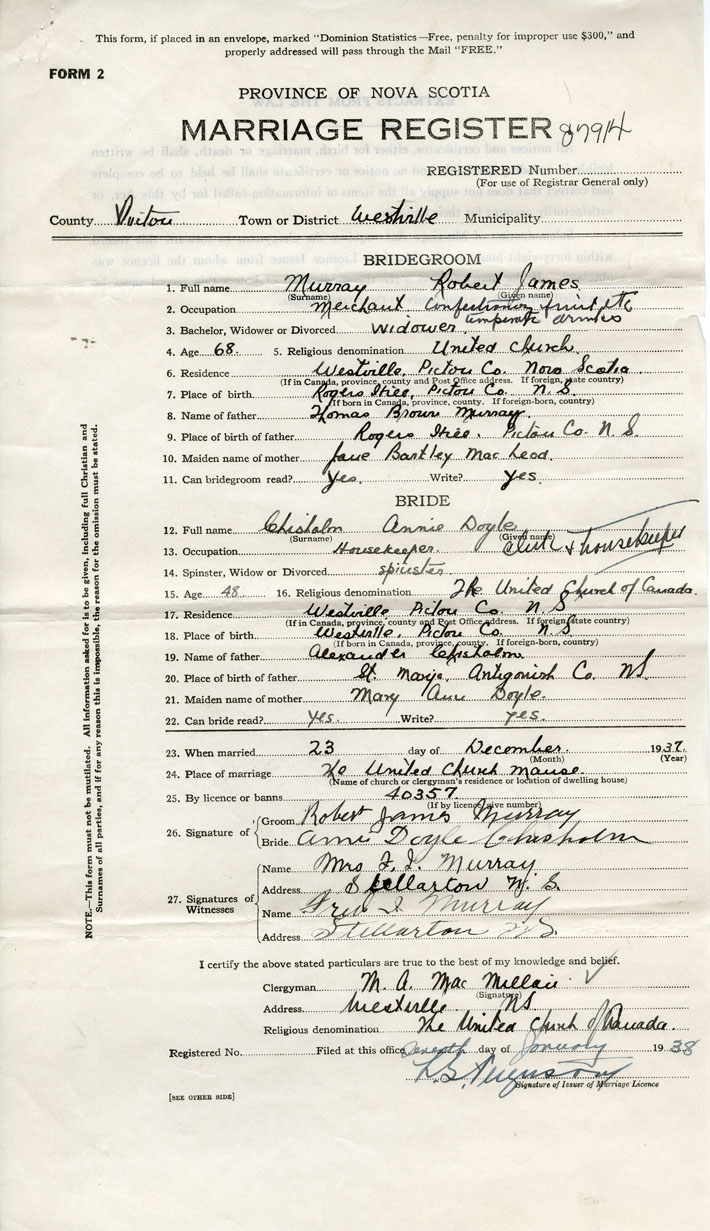 This form, if placed in an envelope, marked "Dominion Statistics—Free, penalty for improper use $300," and
properly addressed will pass through the Mail "FREE."
FORM 2
PROVINCE OF NOVA SCOTIA
MARRIAGE REGISTER 87914
REGISTERED Number
(For use of Registrar General only)
County Pictou Town or District Westville Municipality
BRIDEGROOM
1. Full name Murray Robert James
(Surname) (Given name)
2. Occupation Merchant. Confectionery fruit etc
temperate drinks
3. Bachelor, Widower or Divorced Widower.
4. Age 68. 5. Religious denomination United Church.
6. Residence Westville, Pictou Co. Nova Scotia
(If in Canada, province, county and Post Office address. If foreign, state country)
7. Place of birth Rogers Hill, Pictou Co. N.S.
(If born in Canada, province, county. If foreign-born, country)
8. Name of father Thomas Brown Murray.
9. Place of birth of father Rogers Hill. Pictou Co. N.S.
10. Maiden name of mother Jane Bartley MacLeod.
11. Can bridegroom read? Yes. Write? Yes.
BRIDE
12. Full name Chisholm Annie Doyle
(Surname) (Given name)
13. Occupation Housekeeper. Clerk & Housekeeper
14. Spinster, Widow or Divorced spinster
15. Age 48. 16. Religious denomination The United Church of Canada.
17. Residence Westville Pictou Co. N.S.
(If in Canada, province, county and Post Office address. If foreign, state country)
18. Place of birth Westville, Pictou Co. N.S.
(If born in Canada, province, county. If foreign-born, country)
19. Name of father Alexander Chisholm
20. Place of birth of father St. Marys, Antigonish Co. NS.
21. Maiden name of mother Mary Ann Doyle.
22. Can bride read? yes. Write? yes.
23. When married 23 day of December. 1937.
(Month) (Year)
24. Place of marriage The United Church Manse.
(Name of church or clergyman's residence or location of dwelling house)
25. By licence or banns 40357.
(If by licence give number)
26. Signature of Groom Robert James Murray
Bride Annie Doyle Chisholm
27. Signatures of Witnesses
Name Mrs F. I. Murray
Address Stellarton N.S.
Name Fred I Murray
Address Stellarton NS.
I certify the above stated particulars are true to the best of my knowledge and belief.
Clergyman M. A. MacMillan
(Signature)
Address Westville NS
Religious denomination The United Church of Canada.
Registered No. Filed at this office Seventh day of January 1938
Signature of Issuer of Marriage Licence
[SEE OTHER SIDE]
NOTE.—This form must not be mutilated. All information asked for is to be given, including full Christian and
Surnames of all parties, and if for any reason this is impossible, the reason for the omission must be stated.